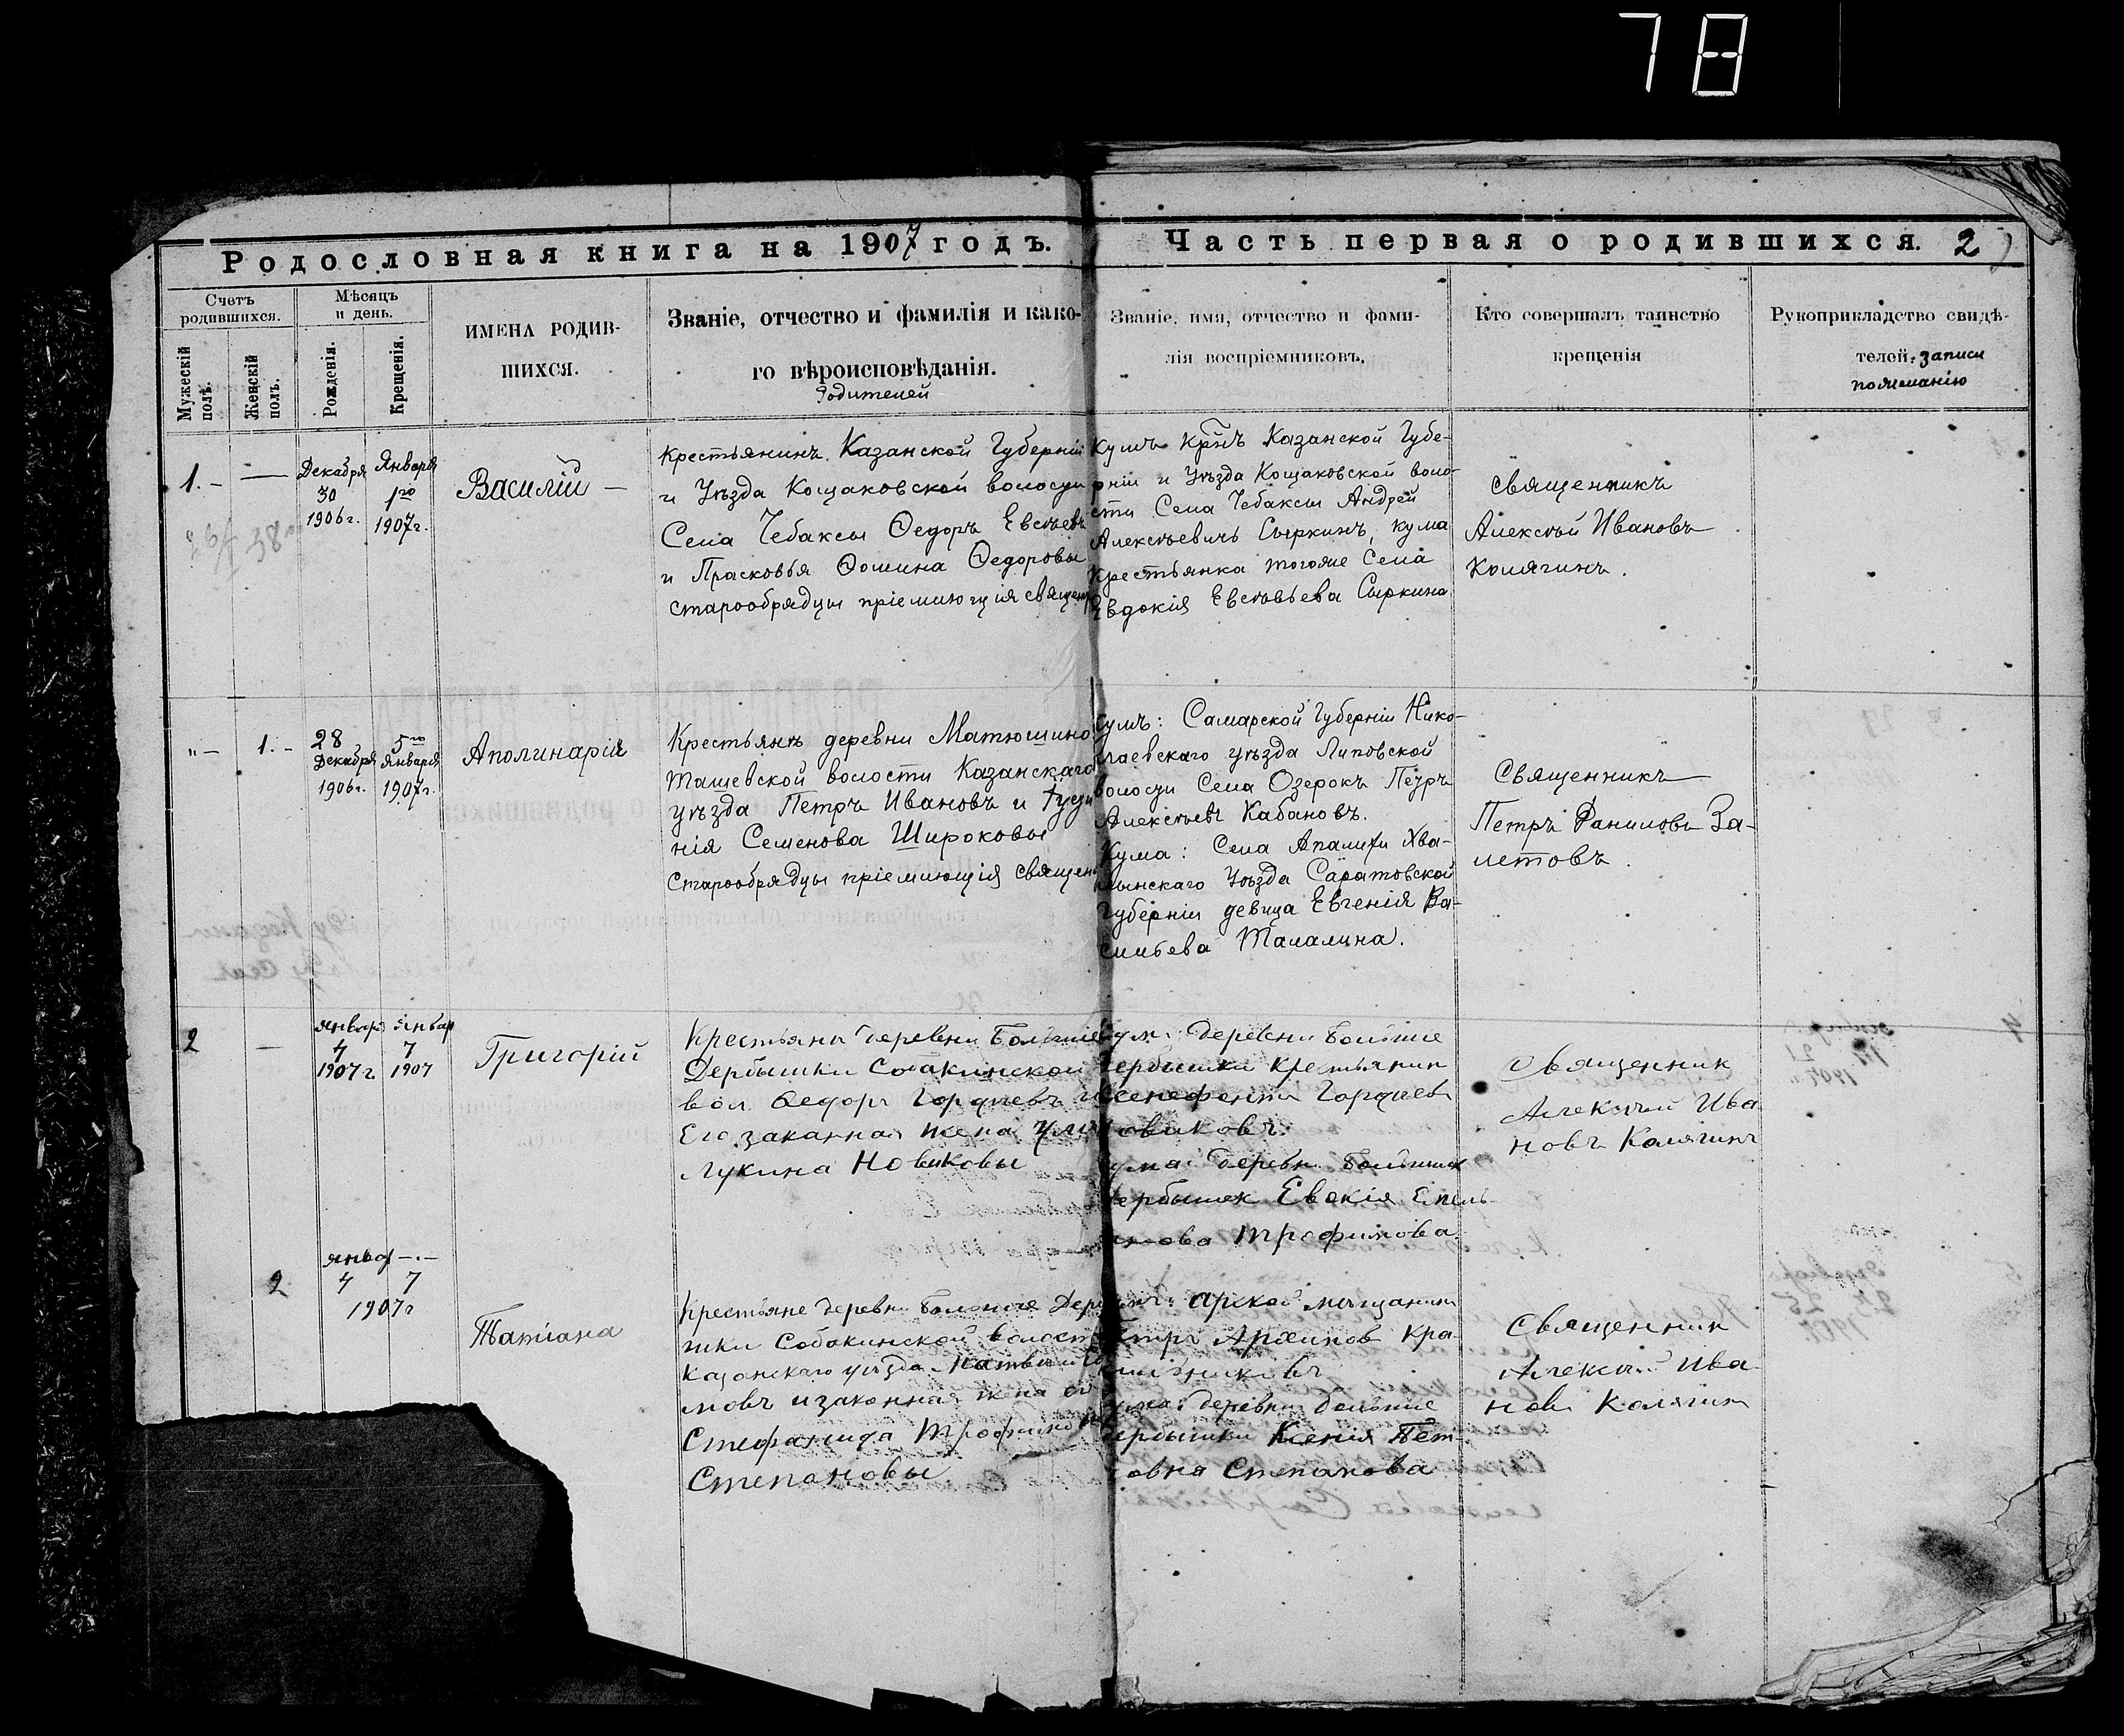 78
Родословная книга на 1907 годъ.
Часть первая о родившихся. 2
Счетъ родившихся.
Мужескій полъ.
Женскій полъ.
Мѣсяцъ и день.
Рожденія.
Крещенія.
ИМЕНА РОДИВ-
ШИХСЯ.
Званіе, отчество и фамилія и како-
го вѣроисповѣданія.
Родителей
Званіе, имя, отчество и фами-
лія воспріемниковъ.
Кто совершалъ таинство
крещенія
Рукоприкладство свидѣ-
телей. записи
по желанію
1. –
Декабря
30
1906 г.
Января
1го
1907 г.
Василій –
Крестьянинъ Казанской Губерніи
и Уѣзда Кощаковской волости
Села Чебаксы Ѳедоръ Евсѣевъ
и Прасковья Ѳомина Ѳедоровы
старообрядцы пріемлющія священ
Кумъ Крнъ Казанской Губе-
рніи и Уѣзда Кощаковской воло-
сти Села Чебаксы Андрей
Алексѣевичъ Сыркинъ, кума
крестьянка тогоже Села
Евдокія Евсѣвьева Сыркина
священникъ
Алексѣй Ивановъ
Калягинъ.
"– 1. –
28
Декабря
1906 г.
5го
Января
1907 г.
Аполинарія
Крестьянъ деревни Матюшино
Ташевской волости Казанскаго
уѣзда Петръ Ивановъ и
нія Семенова Широковы
Старообрядцы пріемлющія священ
Кумъ: Самарской Губерніи Нико-
лаевскаго уѣзда Липовской
волости Села Озерокъ Петръ
Алексѣевъ Кабановъ.
Кума: Села Апалихи Хва-
лынскаго Уѣзда Саратовской
Губерніи девица Евгенія Ва-
сильева Талалина.
Священникъ
Петръ Даниловъ За-
летовъ.
2 –
январ
4
1907 г.
январ
7
1907
Григорій
Крестьяни деревни Большіе
Дербышки Собакинской
вол. Ѳедоръ Гордѣевъ и
Его законная жена
Лукина Новиковы
кум: деревни Большие
Дербышки крестьянин
Ксенефонтъ Гордеев
Новиковъ.
кума: деревни Большие
Дербышек Евокія Емель-
янова Трофимова
Священник
Алексѣй Ива
новъ Калягинъ
2
январ –.–
4 7
1907 г
Татіана
Крестьяне деревни Большие Дербы
шки Собакинской волост
Казанскаго уѣзда Матвѣй
мовъ и законная жена его
Стефанида Трофимова
Степановы
кумъ: Арской мѣщанин
Петръ Архипов Кра-
сильниковъ
кума: деревни Большие
Дербышки Ксенія Пет-
ровна Степанова
Священник
Алексѣй Ива
новъ Калягин